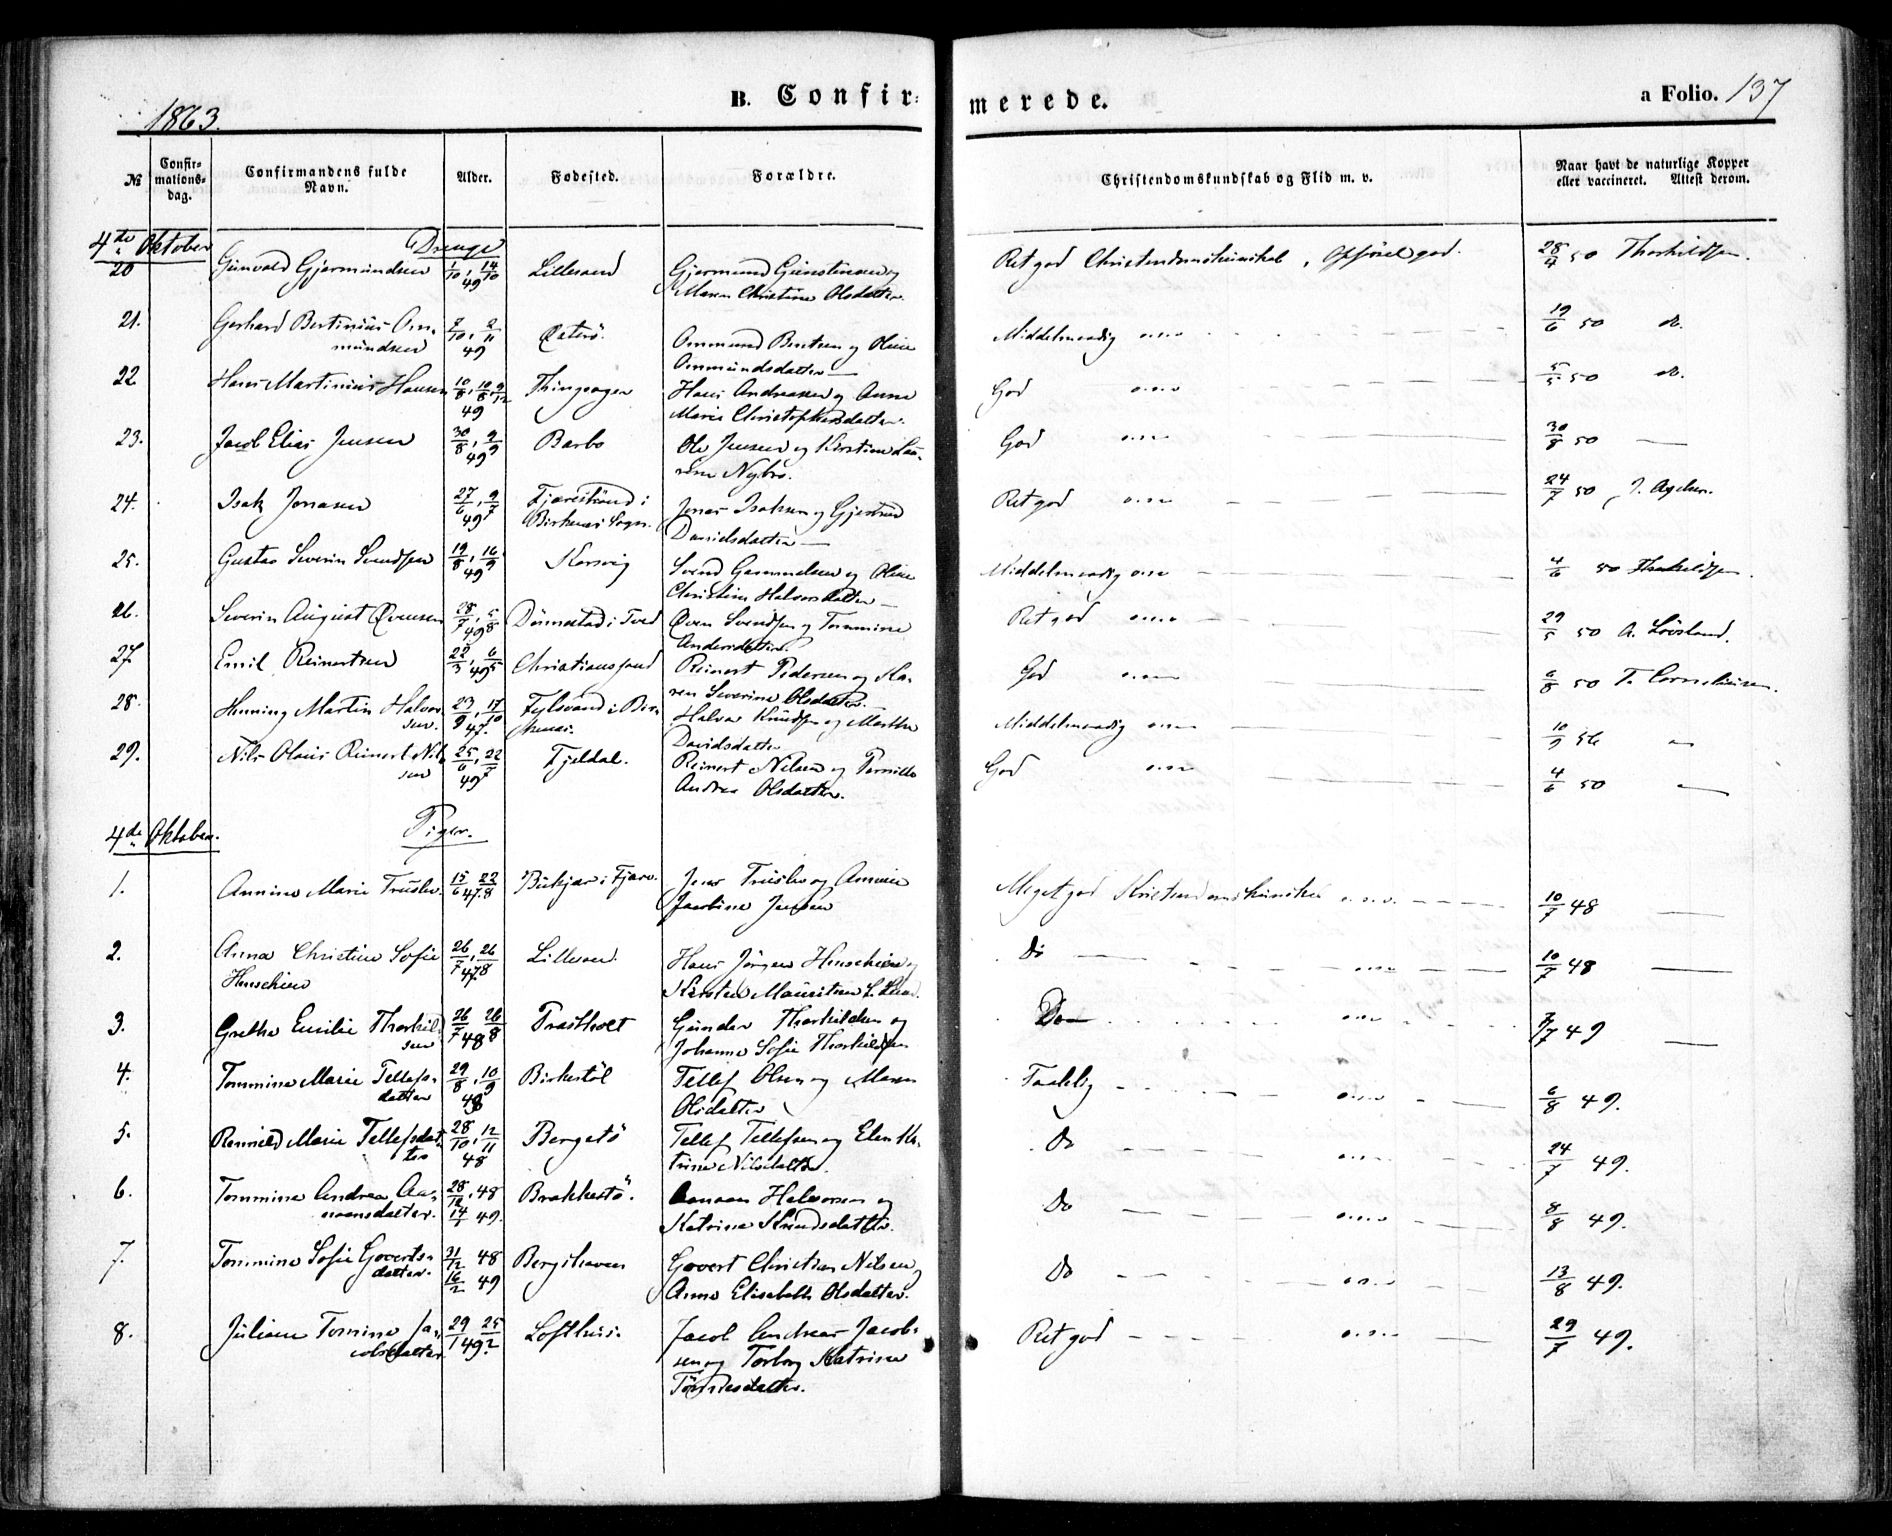 1863.
B. Confir-
merede.
a Folio. 137
№
Confir-
mations-
dag.
Confirmandens fulde
Navn.
Alder.
Fødested.
Forældre.
Christendomskundskab og Flid m. v.
Naar havt de naturlige Kopper
eller vaccineret. Attest derom.
4de Oktober Drenge
20 Gunvald Gjermundsen 1/10, 14/10 49 Lillesand Gjermund Gunstensen og
Maren Christine Olsdatter.
Ret god Christendomskundskab, Opførsel god. 28/4 50 Thorkildsen.
21. Gerhard Bertinius Om-
mundsen 7/10, 2/11 49 Ommund Berntsen og Oline
Ommundsdatter
Middelmaadig o.s.v. 19/6 50 do.
22 Hans Martinius Hansen 49 Thingsager Hans Andreasen og Anne
Maria Christoffersdatter.
God o.s.v. 5/5 50 do.
23. Jacob Elias Jensen 30/8, 9/9 49 Barbo Ole Jensen og Kirstine Lau-
Nybro.
God o.s.v. 30/8 50 —
24. Isak Jonasen 27/6, 9/7 49 i
Birkenæs Sogn. Jonas Isaksen og Gjertrud
Davidsdatter —
Ret god o.s.v. 24/7 50
25. Gustav Severin Svendsen 19/8, 16/9 49 Korsvig Svend Gammelsen og Oline
Christine Halvorsdatter —
Middelmaadig o.s.v. 4/6 50 Thorkildsen.
26. Severin August Øvensen 28/7, 5/8 49 Dønnestad i Tved Øven Svendsen og Tommine
Andersdatter.
Ret god o.s.v. 29/5 50 A. Løvsland.
27 Emil Reinertsen 22/3, 6/5 49 Christianssand Reinert Pedersen og Ka-
ren Severine Olsdatter.
God o.s.v. 6/8 50
28. Henning Martin Halvor-
sen. 23/9, 17/10 47. i Bir-
kenæs. Halvor Knudsen og Marthe
Davidsdatter
Middelmaadig o.s.v. 10/9 56 "
29. Nils Olaus Reinert Nil-
sen 25/6, 22/7 49 Fjeldal. Reinert Nilsen og Pernille
Andrea Olsdatter.
God o.s.v. 4/6 50 "
4de Oktober. Piger.
1. Annine Marie Trusler 15/6 22/8 47. i Fjære. Jens Trusler og Annine
Jacobine Jensen
Meget god Kristendomskundskab o.s.v. 10/7 48 —
2. Anna Christine Sofie
Henschien 26/7, 26/8 47 Lillesand. Hans Jørgen Henschien og
Kirsten
Do o.s.v. 10/7 48 —
3. Grethe Emilie Thorkild-
sen 26/7 26/8 48 Præstholt Gunder Thorkildsen og
Johanne Sofie Thorkildsen
Do o.s.v. 7/7 49 —
4. Tommine Marie Tellefs-
datter 29/8, 10/9 48 Birkestøl Tellef Olsen og Maren
Olsdatter
Taalelig o.s.v. 6/8 49.
5. Marie Tellefsdat-
ter 28/10, 12/11 48 Bergstø Tellef Tellefsen og Elen Ka-
trine Nilsdatter.
Do o.s.v. 24/7 49.
6. Tommine Andrea Aa-
nonsdatter. 28/12 48 14/1 49. Brækkestø. Aanon Halvorsen og
Katrine Knudsdatter.
Do o.s.v. 8/8 49.
7. Tommine Sofie Goverts-
datter. 31/12 48 16/2 49 Bergshaven Govert Christian Nilsen og
Anne Elisabeth Olsdatter.
Do o.s.v. 13/8 49.
8. Juliane Tomine Ja-
cobsdatter 29/1 25/2 49. Lofthus. Jacob Andreas Jacob-
sen og Torborg Katrine
Tønnesdatter.
Ret god o.s.v. 29/7 49.